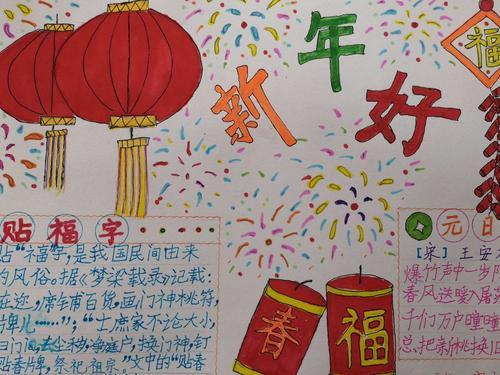 新年好
福
贴福字
贴“福”字,是我国民间由来
的风俗。据《梦梁载录》记载:
在迎,席铺百货,画门神桃符,
牌儿……”;“士庶家不论大小,
门闾,去尘秽,净庭户,换门神,钉
贴春牌,祭祀祖宗。”文中的“贴春
春
福
元日
[宋]王安
爆竹声中一岁
春风送暖入屠苏
千们万户曈曈
总把新桃换旧